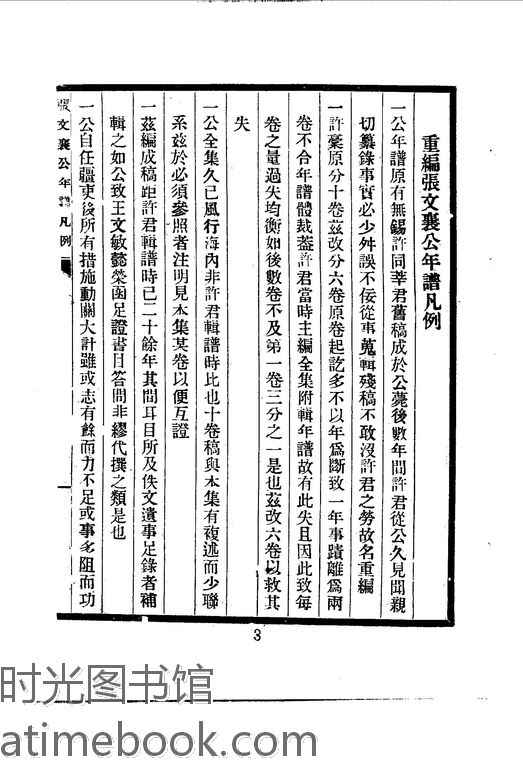 重編張文襄公年譜凡例
一公年譜原有無錫許同莘君舊稿成於公薨後數年間許君從公久見聞親
切纂錄事實必少舛誤不佞從事蒐輯殘稿不敢沒許君之勞故名重編
一許稾原分十卷茲改分六卷原卷起訖多不以年爲斷致一年事蹟離爲兩
卷不合年譜體裁蓋許君當時主編全集附輯年譜故有此失且因此致每
卷之量過失均衡如後數卷不及第一卷三分之一是也茲改六卷以救其
失
一公全集久已風行海內非許君輯譜時比也十卷稿與本集有複述而少聯
系茲於必須參照者注明見本集某卷以便互證
一茲編成稿距許君輯譜時已二十餘年其間耳目所及佚文遺事足錄者補
輯之如公致王文敏懿榮函足證書目答問非繆代撰之類是也
一公自任疆吏後所有措施動關大計雖或志有餘而力不足或事多阻而功
張文襄公年譜凡例
一
3
时光图书馆
atimebook.com